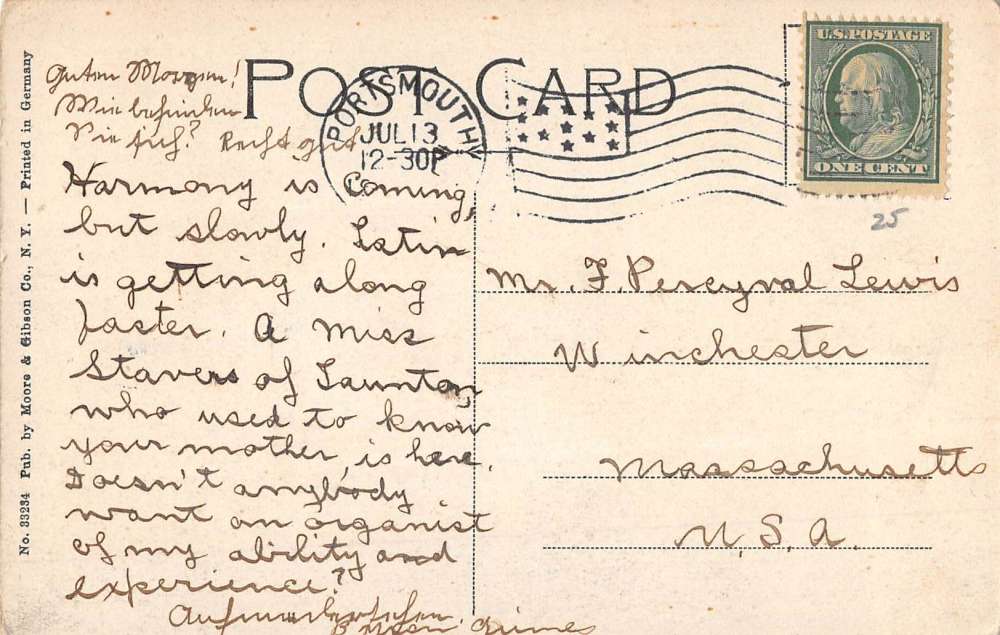 No. 33234 Pub. by Moore & Gibson Co., N. Y. — Printed in Germany
POST CARD
PORTSMOUTH
JUL 13
12-30P
U.S. POSTAGE
ONE CENT
25
Guten Morgen!
Wie befinden
Sie sich? Recht gut
Harmony is coming,
but slowly. Latin
is getting along
faster. A Miss
Stavers of Taunton,
who used to know
your mother, is here.
Doesn't anybody
want an organist
of my ability and
experience?
Auf
Grimes
Mr. F. Percyval Lewis
Winchester
Massachusetts
U.S.A.